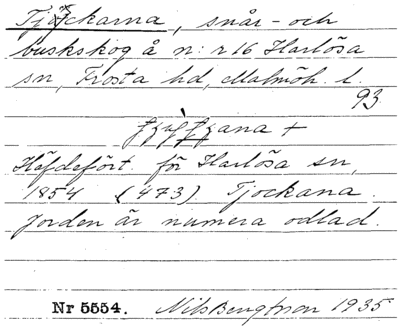 Tjockarna, snår- och
buskskog å n:r 16 Harlösa
sn, Frosta hd, Malmöh. l.
93
+
Häfdefört. för Harlösa sn,
1854 (473) Tjockana.
Jorden är numera odlad.
Nr 5554. Nils Bengtson 1935